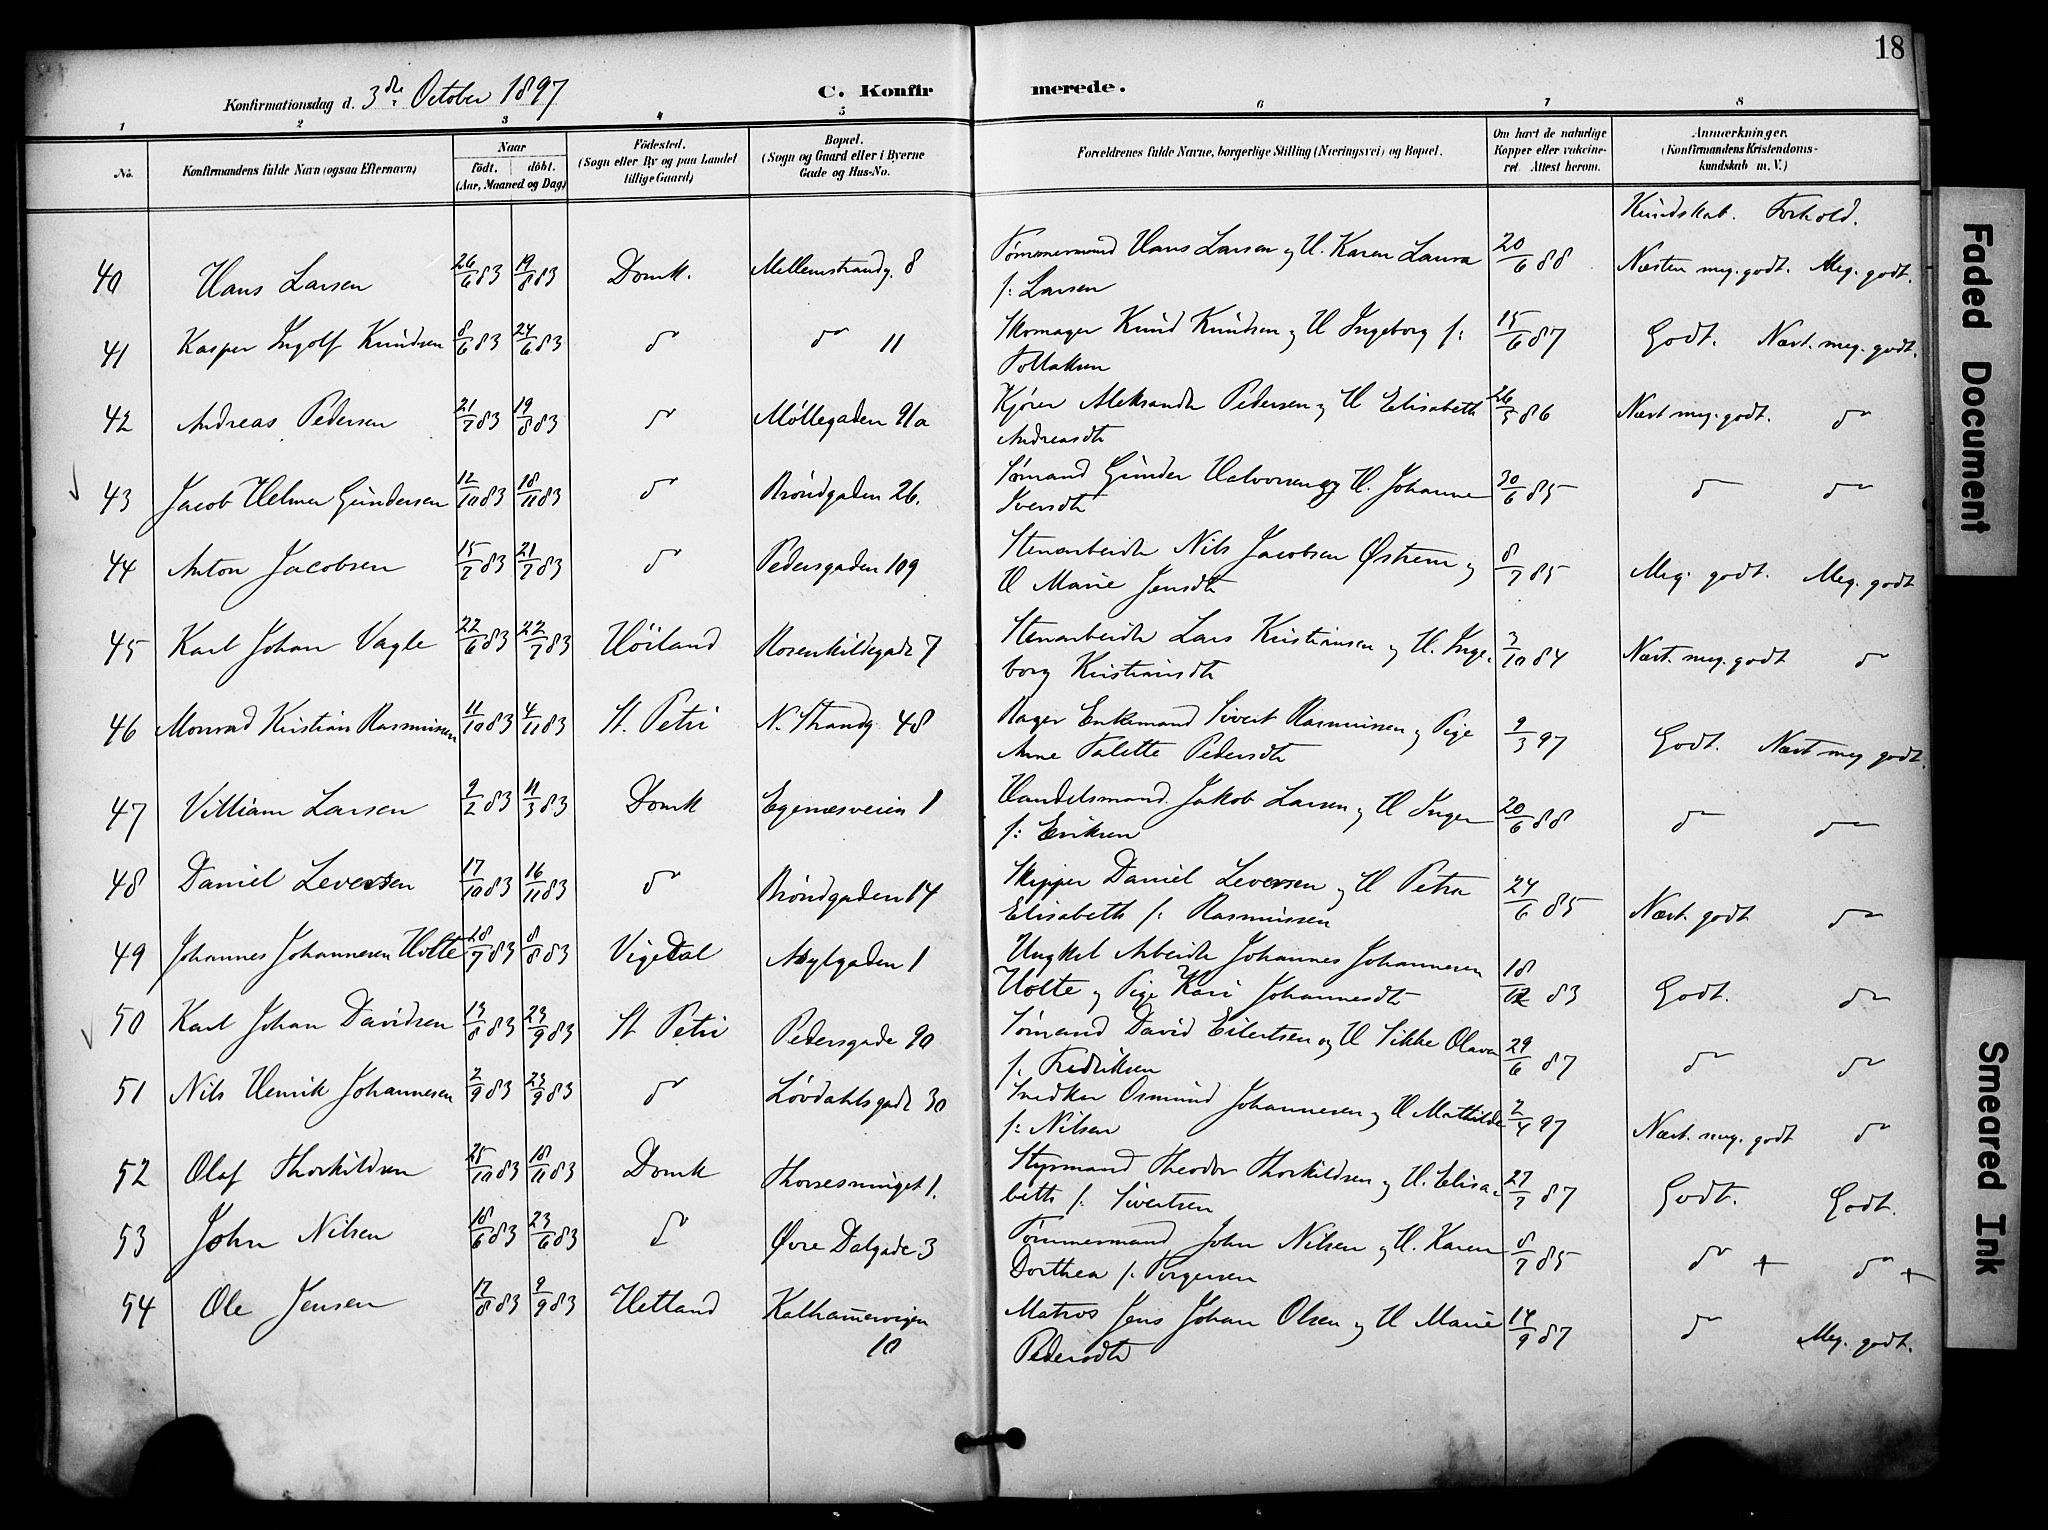 18
Konfirmationsdag d. 3die October 1897 C. Konfirmerede.
1 2 3 4 5 6 7 8
No. Konfirmandens fulde Navn (ogsaa Efternavn) Naar födt. döbt. (Aar, Maaned og Dag) Födested. (Sogn eller By og paa Landet tillige Gaard) Bopæl. (Sogn og Gaard eller i Byerne Gade og Hus-No. Forældrenes fulde Navne, borgerlige Stilling (Næringsvei) og Bopæl. Om havt de naturlige Kopper eller vakcineret. Attest herom. Anmærkninger. (Konfirmandens Kristendomskundskab m. V.)
Kundskab. Forhold.
40 Hans Larsen 26/6 83 19/8 83 Domk. Mellemstrandg. 8 Tømmermand Hans Larsen og H. Karen Laura 20/6 88 Næsten meg. godt. Meg. godt.
f: Larsen
41 Kasper Ingolf Knudsen 8/6 83 24/6 83 do do 11 Skomager Knud Knudsen og H Ingeborg f: 15/6 87 Godt. Næst. meg. godt.
Tollaksen
42 Andreas Pedersen 21/7 83 19/8 83 do Møllegaden 91a Kjører Aleksander Pedersen og H Elisabeth 26/5 86 Næst meg. godt. do
Andreasdt
43 Jacob Helmer Gundersen 12/10 83 18/11 83 do Brøndgaden 26. Sømand Gunder Halvorsen og H. Johanne 30/6 85 do do
Iversdt
44 Anton Jacobsen 15/7 83 21/7 83 do Pedersgaden 109 Stenarbeider Nils Jacobsen Østrem og 8/7 85 Meg. godt. Meg. godt
H Marie Jensdt
45 Karl Johan Vagle 22/6 83 22/7 83 Höiland Rosenkildegade 7 Stenarbeider Lars Kristiansen og H. Inge- 3/10 84 Næst. meg. godt do
borg Kristiansdt
46 Monrad Kristian Rasmussen 11/10 83 4/11 83 St. Petri N. Strandg. 48 Bager Enkemand Sivert Rasmussen og Pige 9/3 97 Godt. Næst meg godt.
Anne Talette Pedersdt
47 Villiam Larsen 9/2 83 11/3 83 Domk Egenesveien 1 Handelsmand. Jakob Larsen og H Inger 20/6 88 do do
f: Eriksen
48 Daniel Leversen 17/10 83 16/11 83 do Brøndgaden 14 Skipper Daniel Leversen og H Petra 24/6 85 Næst. godt do
Elisabeth f: Rasmussen
49 Johannes Johannesen Holte 28/7 83 8/8 83 Vigedal Asylgaden 1 Ungkel Arbeider Johannes Johannesen 18/12 83 Godt. do
Holte og Pige Kari Johannesdt
50 Karl Johan Davidsen 13/8 83 23/9 83 St Petri Pedersgade 90 Sømand David Eilertsen og H Sikke Olava 29/6 87 do do
f. Fredriksen
51 Nils Henrik Johannesen 2/9 83 23/9 83 do Løvdahlsgade 30 Snedker Osmund Johannesen og H Mathilde 2/4 97 Næst. meg. godt do
f: Nilsen
52 Olaf Thorkildsen 25/10 83 18/11 83 Domk Thorsesminget 1. Styrmand Theodor Thorkildsen og H. Elisa- 27/7 87 Godt. Godt.
beth f: Sivertsen
53 John Nilsen 18/6 83 23/6 83 do Øvre Dalgade 3 Tømmermand John Nilsen og H. Karen 8/7 85 do + do +
Dorthea f: Torgersen
54 Ole Jensen 17/8 83 9/9 83 Hetland Kalhamervigen Matros Jens Johan Olsen og H Marie 14/9 87 do Meg. godt.
10 Pedersdt
Faded Document
Smeared Ink